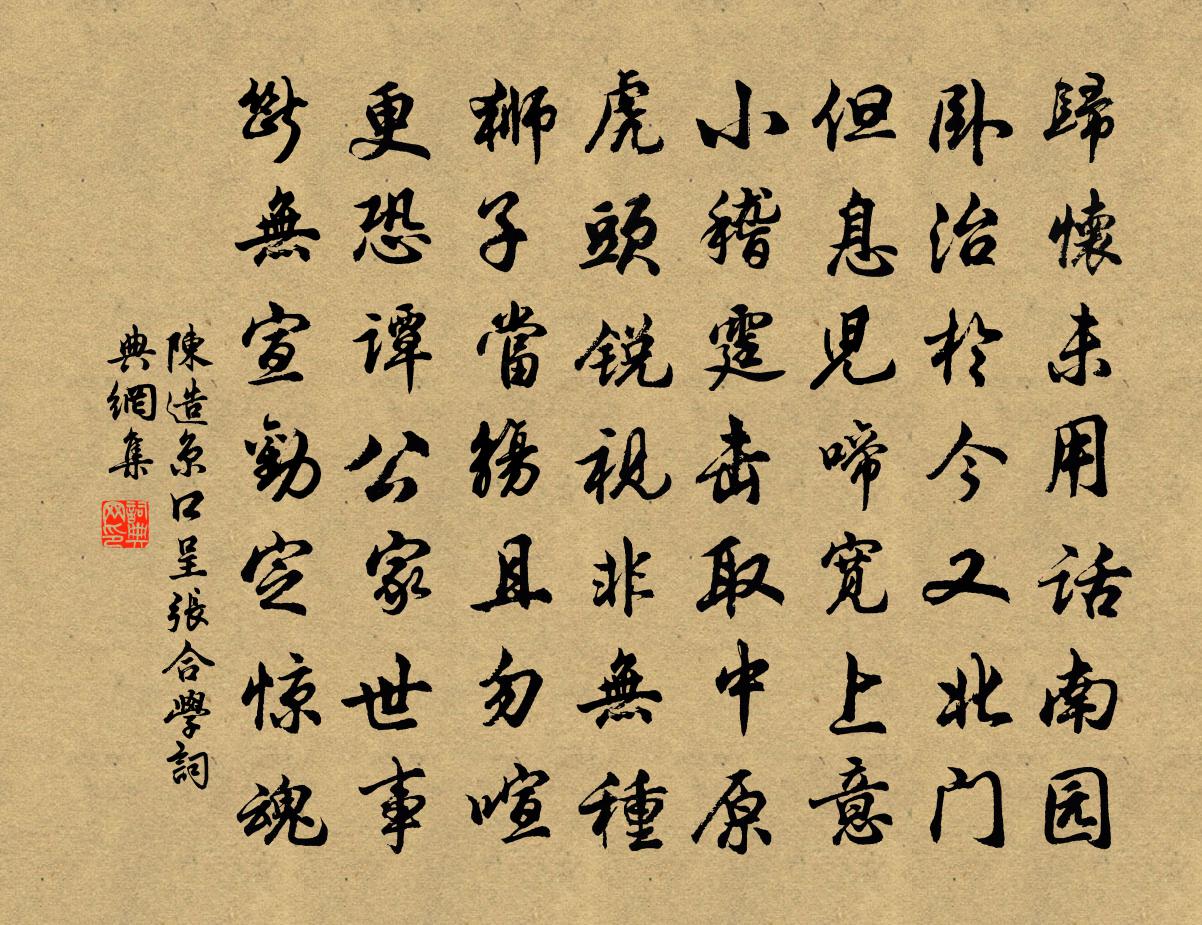 歸懷未用話南园
卧治於今又北门
但息児啼寬上意
小稽霆击取中原
虎頭锐視非無種
獅子當觴且勿喧
更恐譚公家世事
斷無宣勸定惊魂
陳造京口呈張合學詞
典網集
詞典
网印